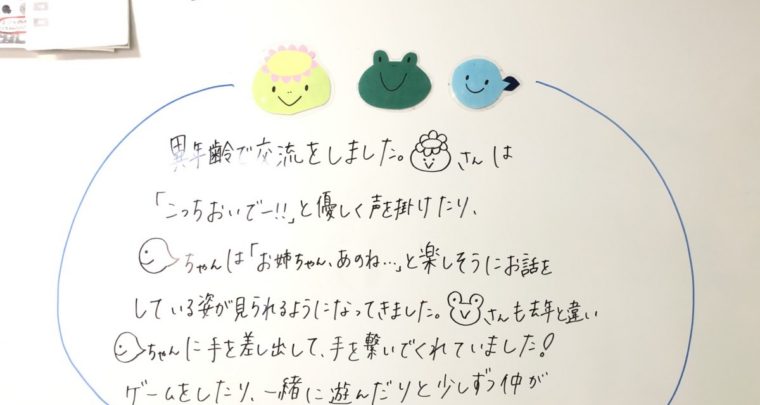 異年齢で交流をしました。さんは
「こっちおいでー!!」と優しく声を掛けたり、
ちゃんは「お姉ちゃん、あのね…」と楽しそうにお話を
している姿が見られるようになってきました。さんも去年と違い
ちゃんに手を差し出して、手を繋いでくれていました!
ゲームをしたり、一緒に遊んだりと少しずつ仲が